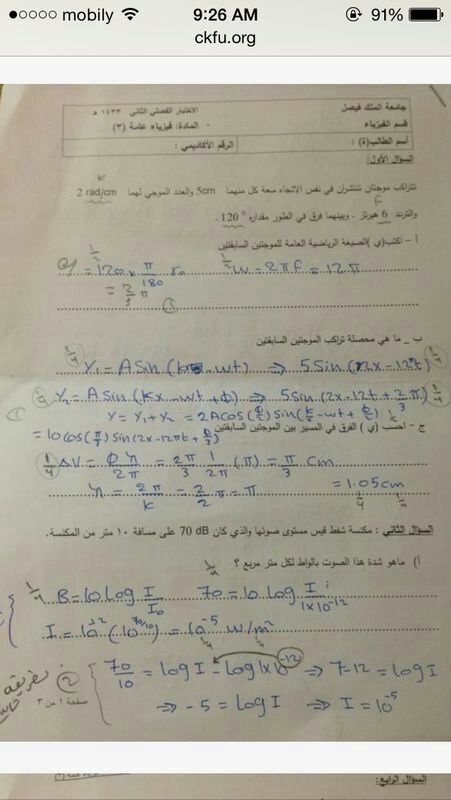 mobily 9:26 AM 91%
ckfu.org
جامعة الملك فيصل
الاختبار الفصلي الثاني ١٤٣٣ هـ
قسم الفيزياء
المادة: فيزياء عامة (٣)
أسم الطالب(ة) :
الرقم الأكاديمي :
السؤال الأول:
K
تتراكب موجتان تنتشران في نفس الاتجاه سعة كل منهما 5cm والعدد الموجي لهما 2 rad/cm
f
والتردد 6 هيرتز . وبينهما فرق في الطور مقداره 120° .
أ - اكتب(ي) الصيغة الرياضية العامة للموجتين السابقتين
= 120 × π/180
w = 2πf = 12π
= 2/3 π
ب _ ما هي محصلة تراكب الموجتين السابقتين
1/4 Y₁ = A Sin (kx - wt) ⇒ 5 Sin (2x - 12πt) 1/4
1/4 Y₂ = A Sin (Kx - wt + Φ) ⇒ 5 Sin (2x - 12t + 2/3 π) 1/4
Y = Y₁ + Y₂ = 2A Cos (Φ/2) Sin (
- wt + Φ/2)
ج - احسب (ي) الفرق في المسير بين الموجتين السابقتين
= 10 Cos (π/3) Sin (2x - 12πt +
1/4 ΔV = Φ λ / 2π = 2π/3 1/2π (π) = π/3 cm
λ = 2π/K = 2/2 π = π
= 1.05 cm
1/4 1/4
السؤال الثاني : مكنسة شفط قيس مستوى صوتها والذي كان 70 dB على مسافة ١٠ متر من المكنسة.
أ) ماهو شدة هذا الصوت بالواط لكل متر مربع ؟
1/4
1/4 B = 10 Log I/I₀ 70 = 10 Log I / 1×10⁻¹²
I = 10⁻¹² (10^70/10) = 10⁻⁵ w/m²
70/10 = log I - log 1×10⁻¹² ⇒ 7-12 = log I
2
صفحة ١ من ٣
⇒ -5 = log I ⇒ I = 10⁻⁵
السؤال الرابع: